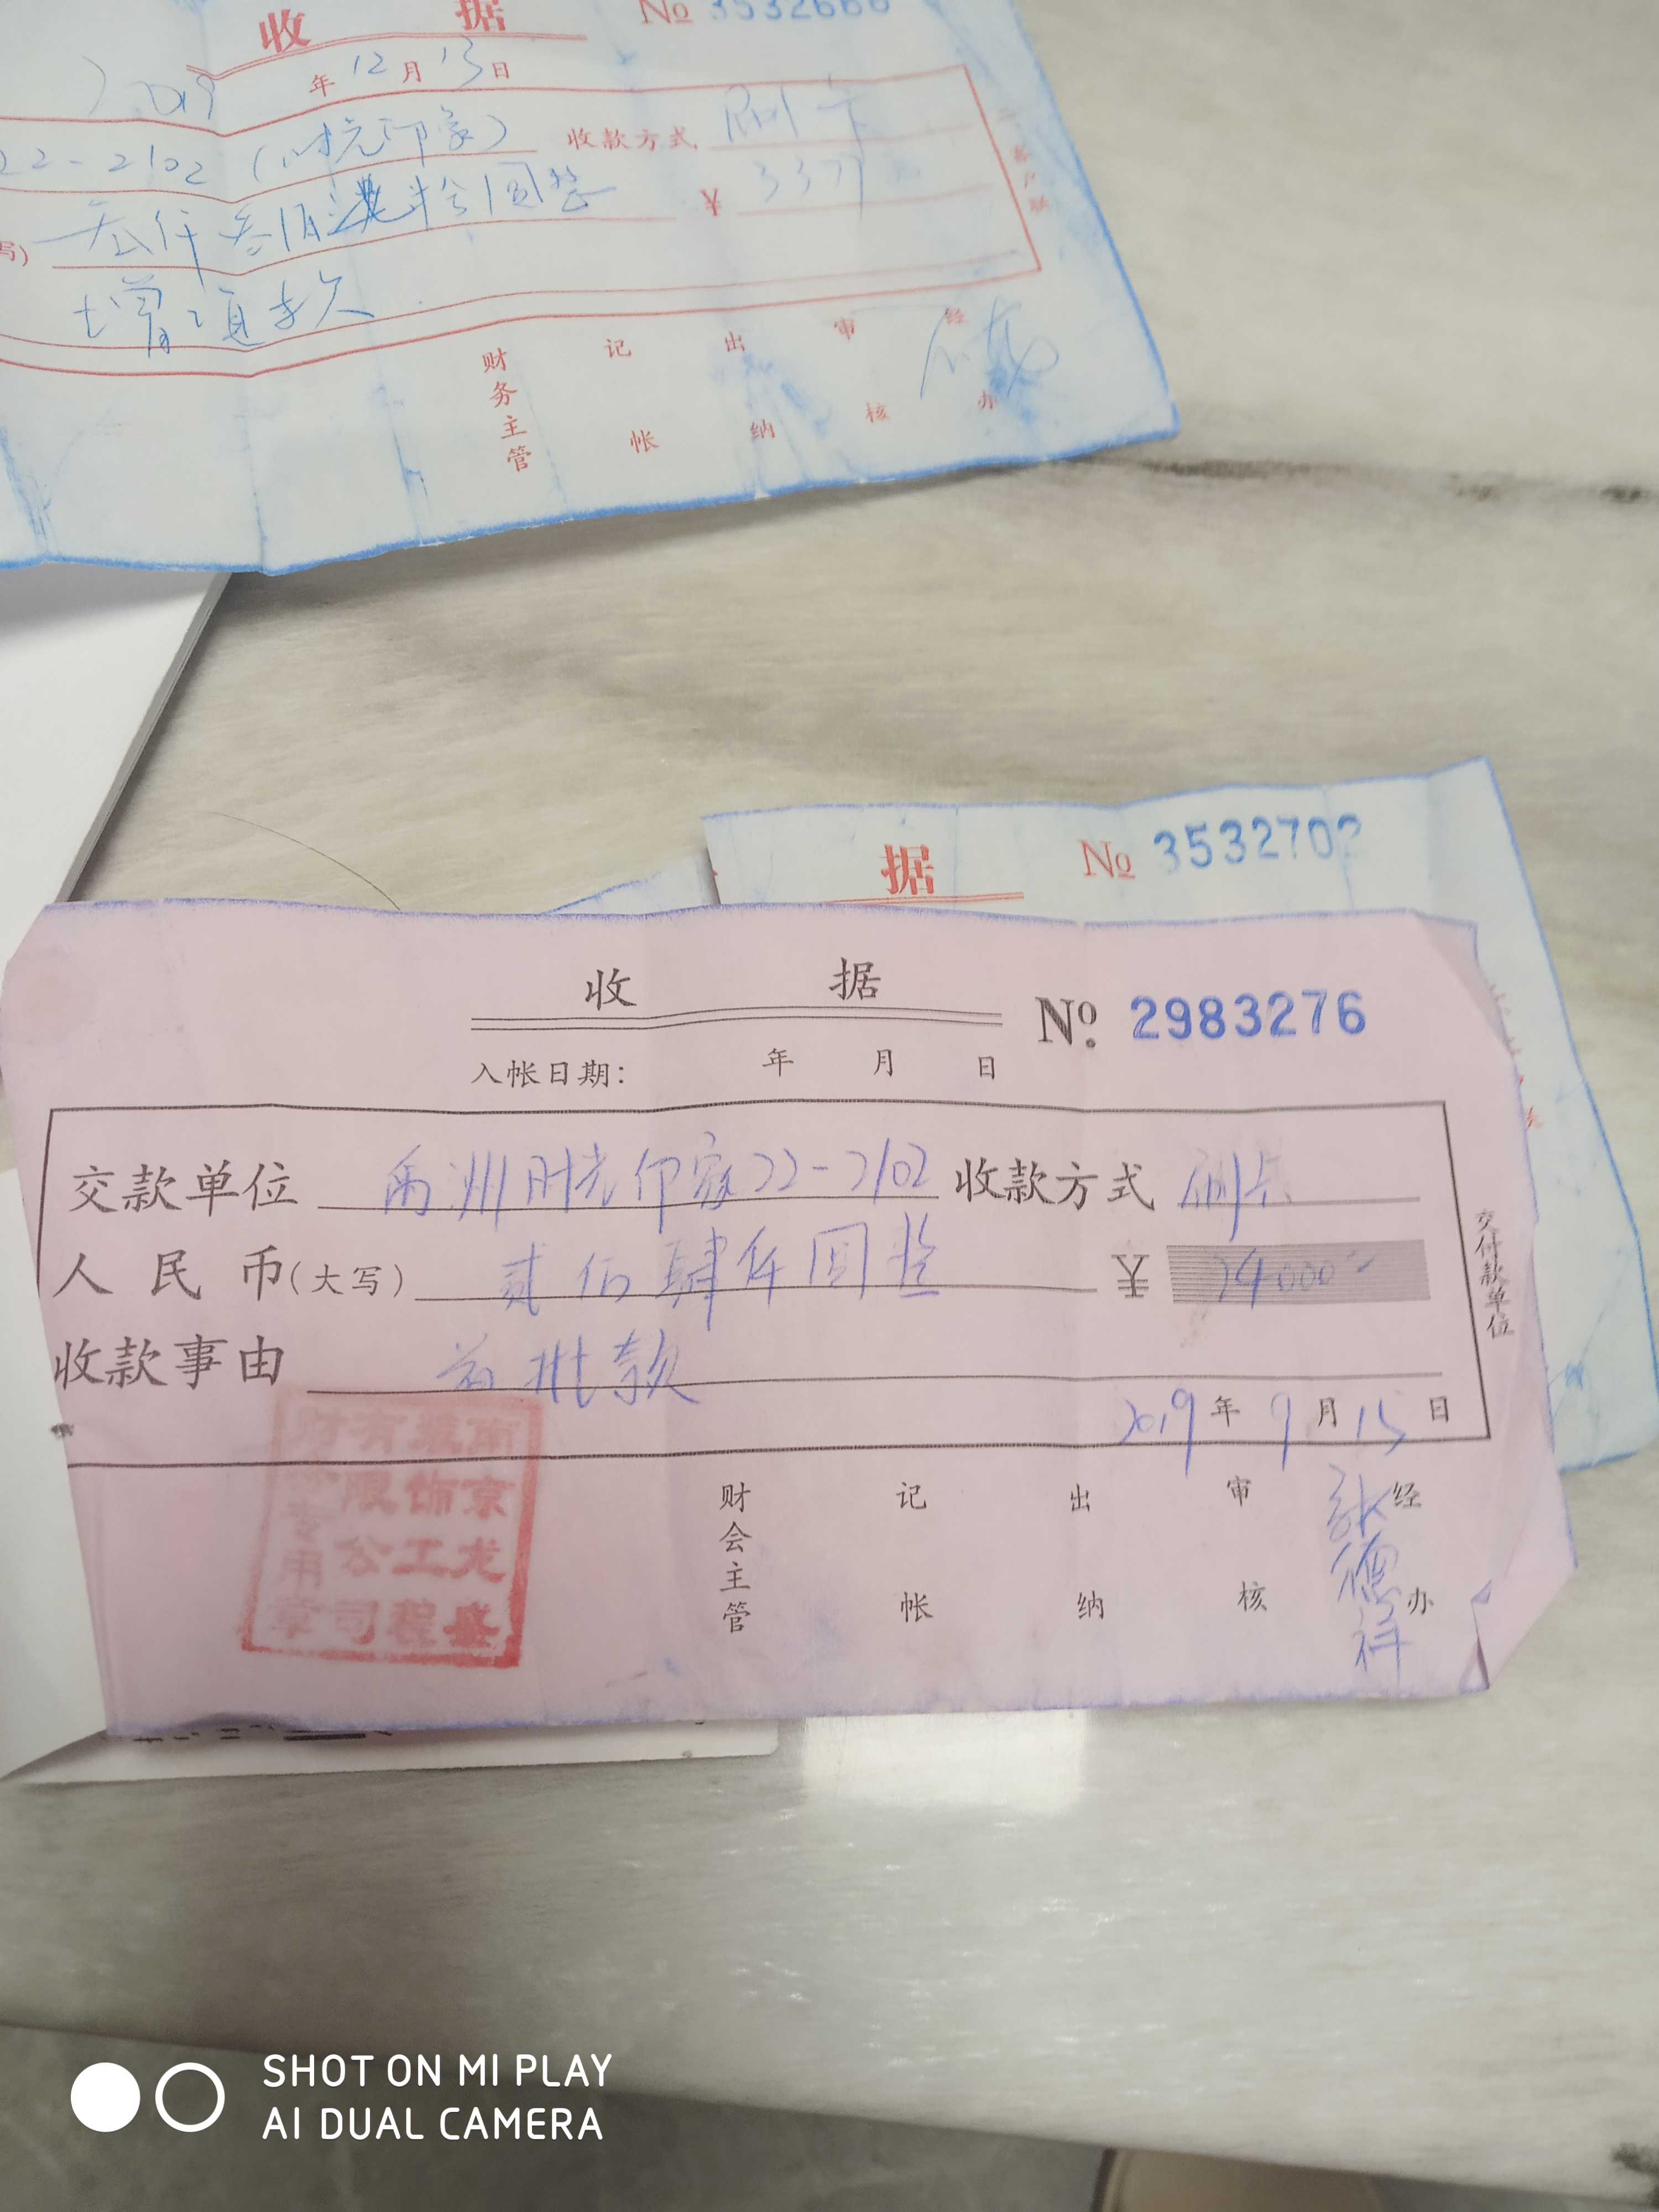 收 据 № 3532666
2019 年 12 月 13 日
22-2102 (时光印象) 收款方式 刷卡
写) 叁仟叁佰柒拾圆整 ¥ 337
增项款
客户联
财务主管 记帐 出纳 审核 经办
据 № 3532702
收 据 Nº. 2983276
入帐日期: 年 月 日
交款单位 禹洲时光印象22-2102 收款方式 刷卡
人民币(大写) 贰佰肆仟圆整 ¥ 24000
收款事由 首批款
2019 年 9 月 15 日
交付款单位
财会主管 记帐 出纳 审核 经办
张德祥
南京龙盛装饰工程有限公司财务专用章
SHOT ON MI PLAY
AI DUAL CAMERA